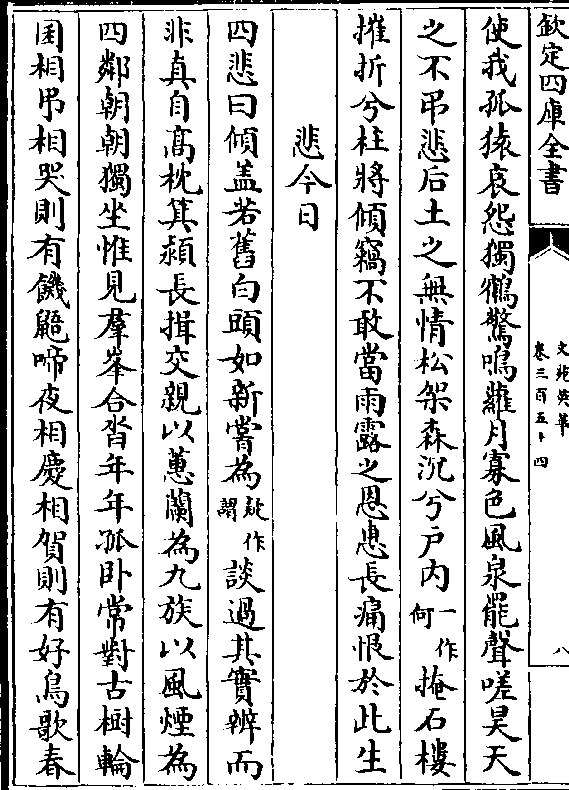 欽定四庫全書
文苑英華
卷三百五十四
八
使我孤猿哀怨獨鶴驚鳴蘿月寡色風泉罷聲嗟昊天
之不弔悲后土之無情松架森沉兮户内一作何掩石樓
摧折兮柱將傾竊不敢當雨露之恩惠長痛恨於此生
悲今日
四悲曰傾盖若舊白頭如新嘗為疑作謂談過其實辨而
非真自髙枕箕潁長揖交親以蕙蘭為九族以風煙為
四鄰朝朝獨坐惟見羣峯合沓年年孤卧常對古樹輪
囷相弔相哭則有饑鼯啼夜相慶相賀則有好鳥歌春